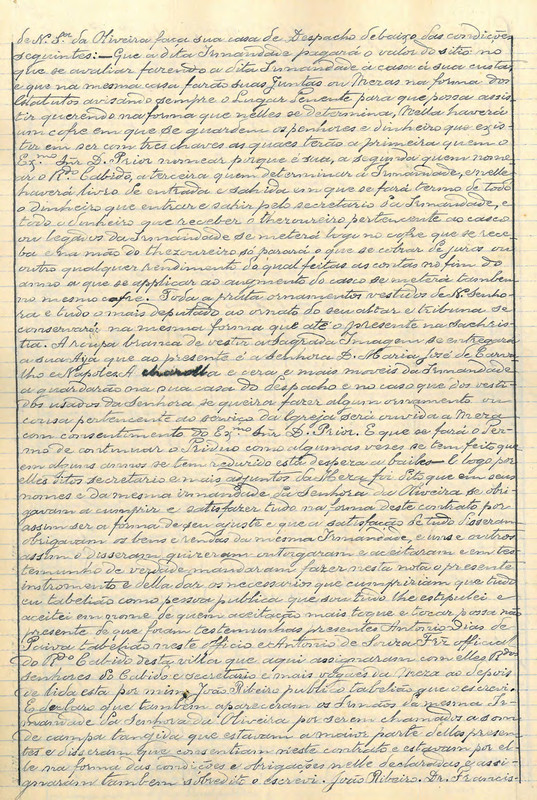 de N. Srª da Oliveira faça sua casa de Despacho debaixo das condições
seguintes: — Que a dita Irmandade pagará o valor do sitio no
que se avaliar fazendo a dita Irmandade a casa á sua custa,
e que na mesma casa farão suas Juntas ou Mezas na forma dos
Estatutos avisando sempre o Lugar Tenente para que possa assis-
tir querendo na forma que nelles se determina, Nella haverá
um cofre em que se guardem os penhores e dinheiro que exis-
tir em ser com tres chaves as quaes terão a primeira quem o
Exmo Snr D. Prior nomear porque é sua, a segunda quem nome-
ar o Rdo Cabido, a terceira quem determinar a Irmandade, e nelle
haverá livro de entrada e sahida em que se fará termo de todo
o dinheiro que entrar e sahir pelo secretario da Irmandade, e
todo o dinheiro que receber o thezoureiro, pertencente ao casco
ou legados da Irmandade se meterá logo no cofre que se rece-
ba e na mão do thezoureiro só parará o que se cobrar de juros ou
outro qualquer rendimento do qual feitas as contas no fim do
anno a que se applicar ao augmento do casco se meterá tambem
no mesmo cofre. Toda a prata ornamentos vestidos de N. Senho-
ra e tudo o mais deputado ao ornato do seu altar e tribuna se
conservará na mesma forma que até o presente na Sachris-
tia. A roupa branca de vestir a Sagrada Imagem se entregará
a sua Aya que ao presente é a Senhora D. Maria José de Carva-
lho e Napoles. A charolla e cera e mais moveis da Irmandade
a guardarão na sua casa do despacho e no caso que dos vesti-
dos usados da Senhora se queira fazer algum ornamento ou
cousa pertencente ao serviço da Igreja será ouvida a Meza
com consentimento do Exmo Snr D. Prior. E que se fará o ter-
mo de continuar o Triduo como algumas vezes se tem feito que
em alguns annos se tem reduzido esta despeza a bailes — E logo por
elles ditos secretario e mais adjuntos da Meza foi dito que em seus
nomes e da mesma irmandade da Senhora da Oliveira se obri-
gavam a cumprir e satisfazer tudo na forma deste contrato por
assim ser a forma de seu ajuste e que a satisfação de tudo disseram
obrigavam os bens e rendas da mesma Irmandade, e uns e outros
assim o disseram, quizeram outorgaram e aceitaram e em tes-
temunho de verdade, mandaram fazer nesta nota o presente
instromento e della dar os necessarios que cumpririam que tudo
eu tabelião como pessoa publica que sou tudo lhe estipulei e
aceitei em nome de quem aceitação mais toque e tocar possa não
presente de que foram testemunhas presentes Antonio Dias de
Paiva tabelião neste officio e Antonio de Souza Frz official
do Rdo Cabido desta villa que aqui assignaram com elles Rdos
senhores do Cabido e secretario e mais vogaes da Meza ao depois
de lida esta por mim João Ribeiro publico tabelião que o escrevi.
E declaro que tambem apareceram os Irmãos da mesma Ir-
mandade da Senhora da Oliveira por serem chamados a som
de campa tangida que estavam a maior parte delles presen-
tes e disseram que consentiam neste contrato e estavam por el-
le na forma das condições e obrigações nelle declaradas, e assi-
gnaram tambem sobredito o escrevi. João Ribeiro. Dr. Francis-